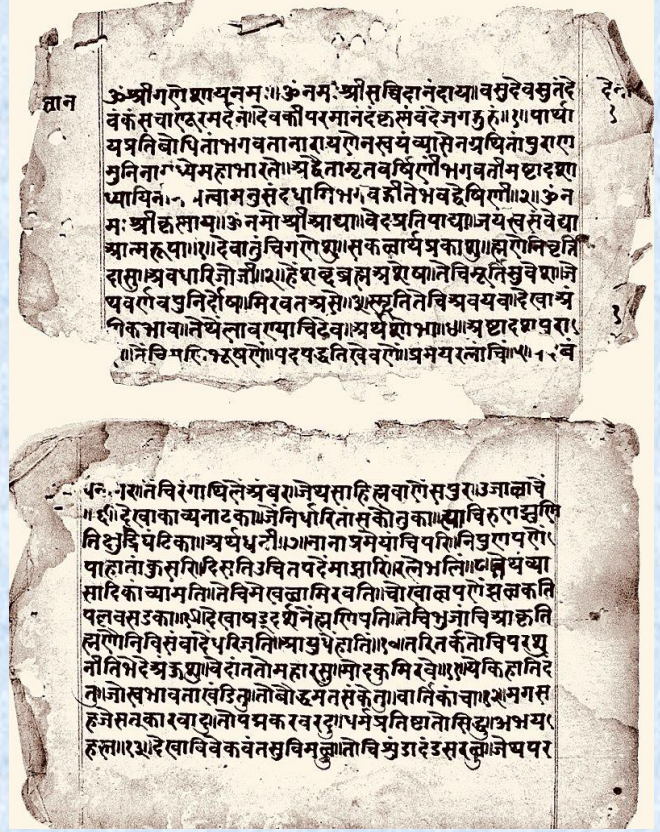 ज्ञान
ॐश्रीगणेशायनमः॥ॐनमःश्रीसच्चिदानंदाय॥वसुदेवसुतंदे
वंकंसचाणूरमर्दनं॥देवकीपरमानंदंकृष्णंवंदेजगद्गुरुं॥१॥पार्था
यप्रतिबोधितांभगवतानारायणेनस्वयंव्यासेनग्रथितांपुराण
मुनिनामध्येमहाभारते॥अद्वैतामृतवर्षिणींभगवतीमष्टादशा
ध्यायिनीं त्वामनुसंदधामिभगवद्गीतेभवद्वेषिणीं॥२॥ॐन
मःश्रीकृष्णाय॥ॐनमोश्रीआद्या॥वेदप्रतिपाद्या॥जयस्वसंवेद्या
आत्मरूपा॥१॥देवातुंचिगणेशु॥सकळार्थप्रकाशु॥ह्मणेनिवृत्ति
दासु॥अवधारिजोजी॥२॥हेंशब्दब्रह्मअशेष॥तेचिमूर्तिसुवेश॥जे
थवर्णवपुनिर्दोष॥मिरवतअसे॥३॥स्मृतितेचिअवयव॥देखाअं
गिकभाव॥तेथलावण्याचिठेव॥अर्थशोभा॥४॥अष्टादशपुराणें
॥तेंचिमणिभूषणें॥पदपद्धतिखेवणें॥प्रमेयरत्नांचि॥५॥ बं
तेंचिरंगाथिलेंअंबर॥जेथसाहित्यवाणेंसपुर॥उजाळाचें
॥६॥देखाकाव्यनाटका॥जेनिर्धारितांसकौतुका॥त्याचिरुणझुणि
तिक्षुद्रघंटिका॥अर्थध्वनी॥७॥नानाप्रमेयांचिपरि॥निपुणपणें
पाहातांकुसरि॥दिसतिउचितपदेंमाझारि॥रत्नेंभलिं॥८॥तेथव्या
सादिकाच्यामति॥तेचिमेखळामिरवति॥चोखाळपणेंझळकति
पल्लवसडका॥९॥देखाषड्दर्शनेंह्मणिपति॥तेचिभुजांचिआकृति
ह्मणोनिविसंवादेंधरिजति॥आयुधेंहाति॥१०॥तरितर्कतोचिपरशु
नीतिभेदेअंकुशु॥वेदांततोमहारसु॥मोदकुमिरवे॥११॥येकिहातिदं
तु॥जोस्वभावताखंडितु॥तोबौद्धमतसंकेतु॥वार्तिकांचा॥१२॥मगस
हजेसतकारवादु॥तोपद्मकरवरदु॥धर्मप्रतिष्टातोसिद्धु॥अभय
हस्तु॥१३॥देखाविवेकवंतसुविमळु॥तोचिशुंडादंडसरळु॥जेथपर